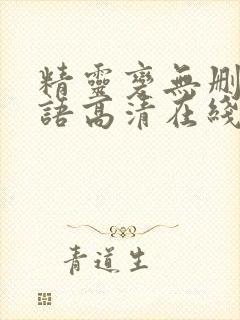 精靈變無刪
語高清在綫
青道生